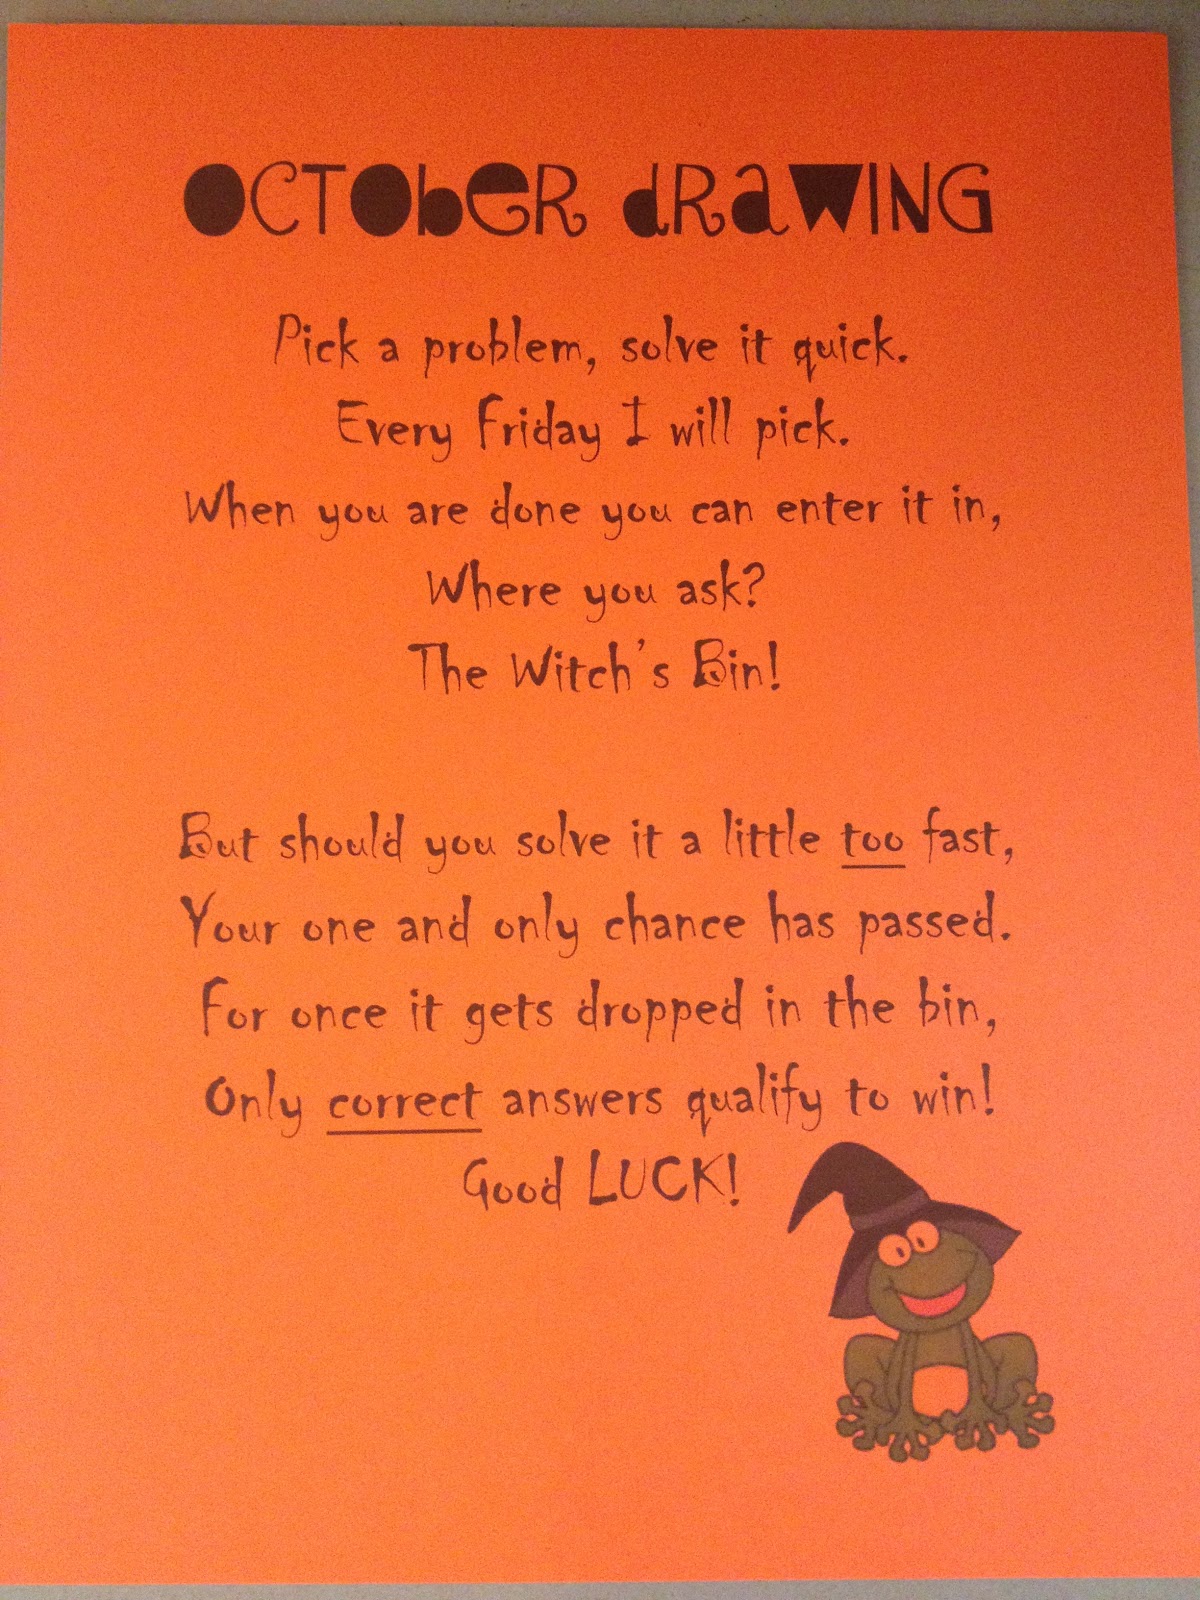 OCTOber dRaWING
Pick a problem, solve it quick.
Every Friday I will pick.
When you are done you can enter it in,
Where you ask?
The Witch's Bin!
But should you solve it a little too fast,
Your one and only chance has passed.
For once it gets dropped in the bin,
Only correct answers qualify to win!
Good LUCK!